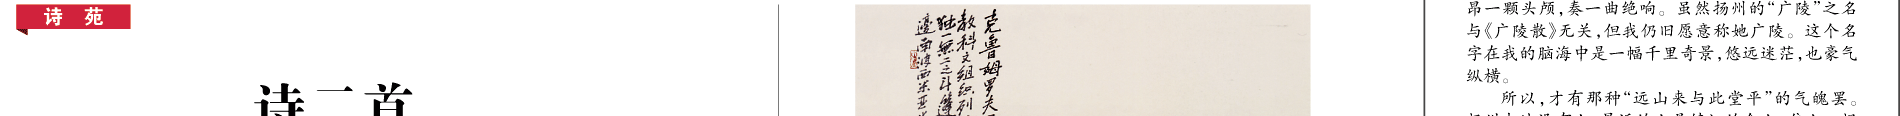 诗 苑
诗二首
克鲁姆罗夫
教科文组织列
独一无二之
边南波西米亚
昂一颗头颅，奏一曲绝响。虽然扬州的“广陵”之名
与《广陵散》无关，但我仍旧愿意称她广陵。这个名
字在我的脑海中是一幅千里奇景，悠远迷茫，也豪气
纵横。
所以，才有那种“远山来与此堂平”的气魄罢。